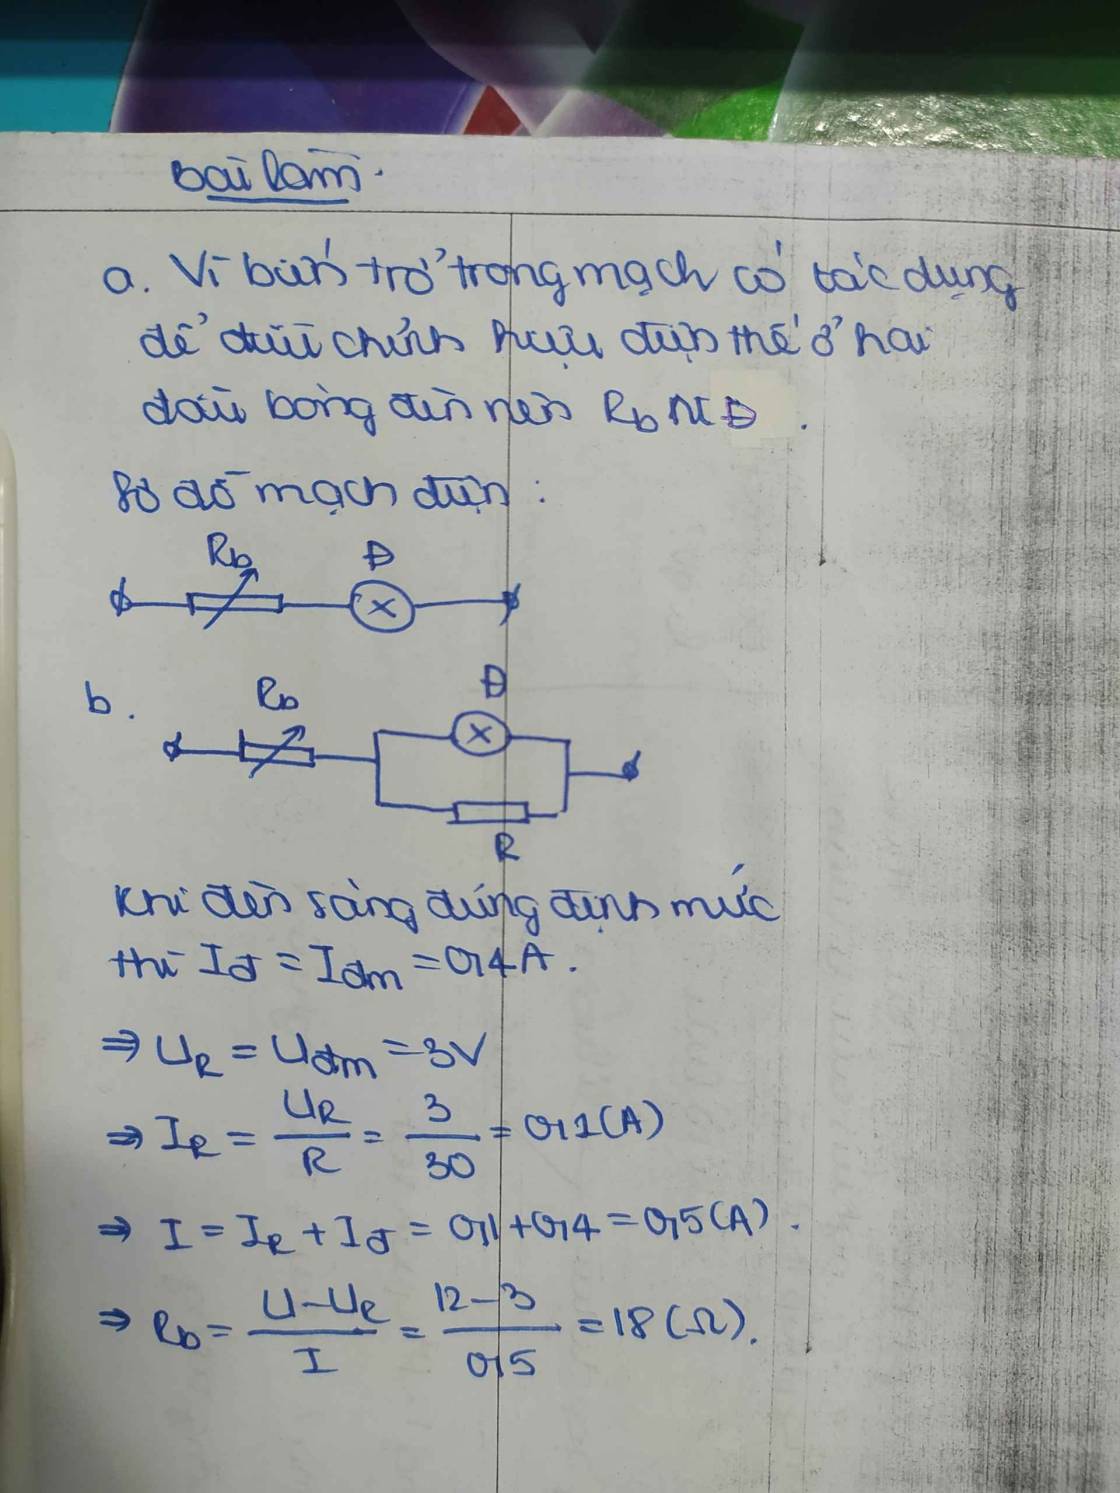 Bài làm.
a. Vì biến trở trong mạch có tác dụng
để điều chỉnh hiệu điện thế ở hai
đầu bóng đèn nên Rb nt Đ.
Sơ đồ mạch điện:
Rb Đ
b. Rb Đ
R
Khi đèn sáng đúng định mức
thì Iđ = Iđm = 0,4A.
⇒ UR = Uđm = 3V
⇒ IR = UR/R = 3/30 = 0,1(A)
⇒ I = IR + Iđ = 0,1+0,4 = 0,5(A).
⇒ Rb = U-UR/I = 12-3/0,5 = 18(Ω).